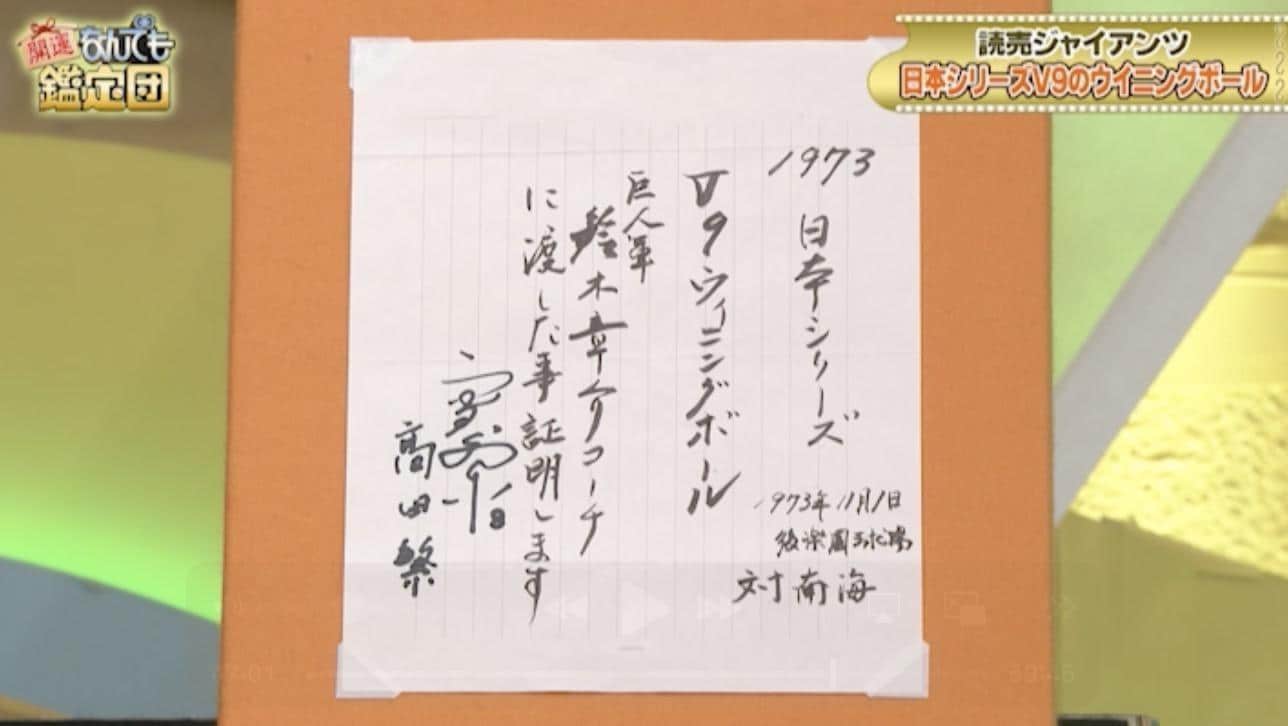 開運
なんでも
鑑定団
読売ジャイアンツ
日本シリーズV9のウイニングボール
1973 日本シリーズ
1973年11月1日
後楽園球場
対南海
V9ウィニングボール
巨人軍
鈴木章介コーチ
に渡した事証明します
高田繁